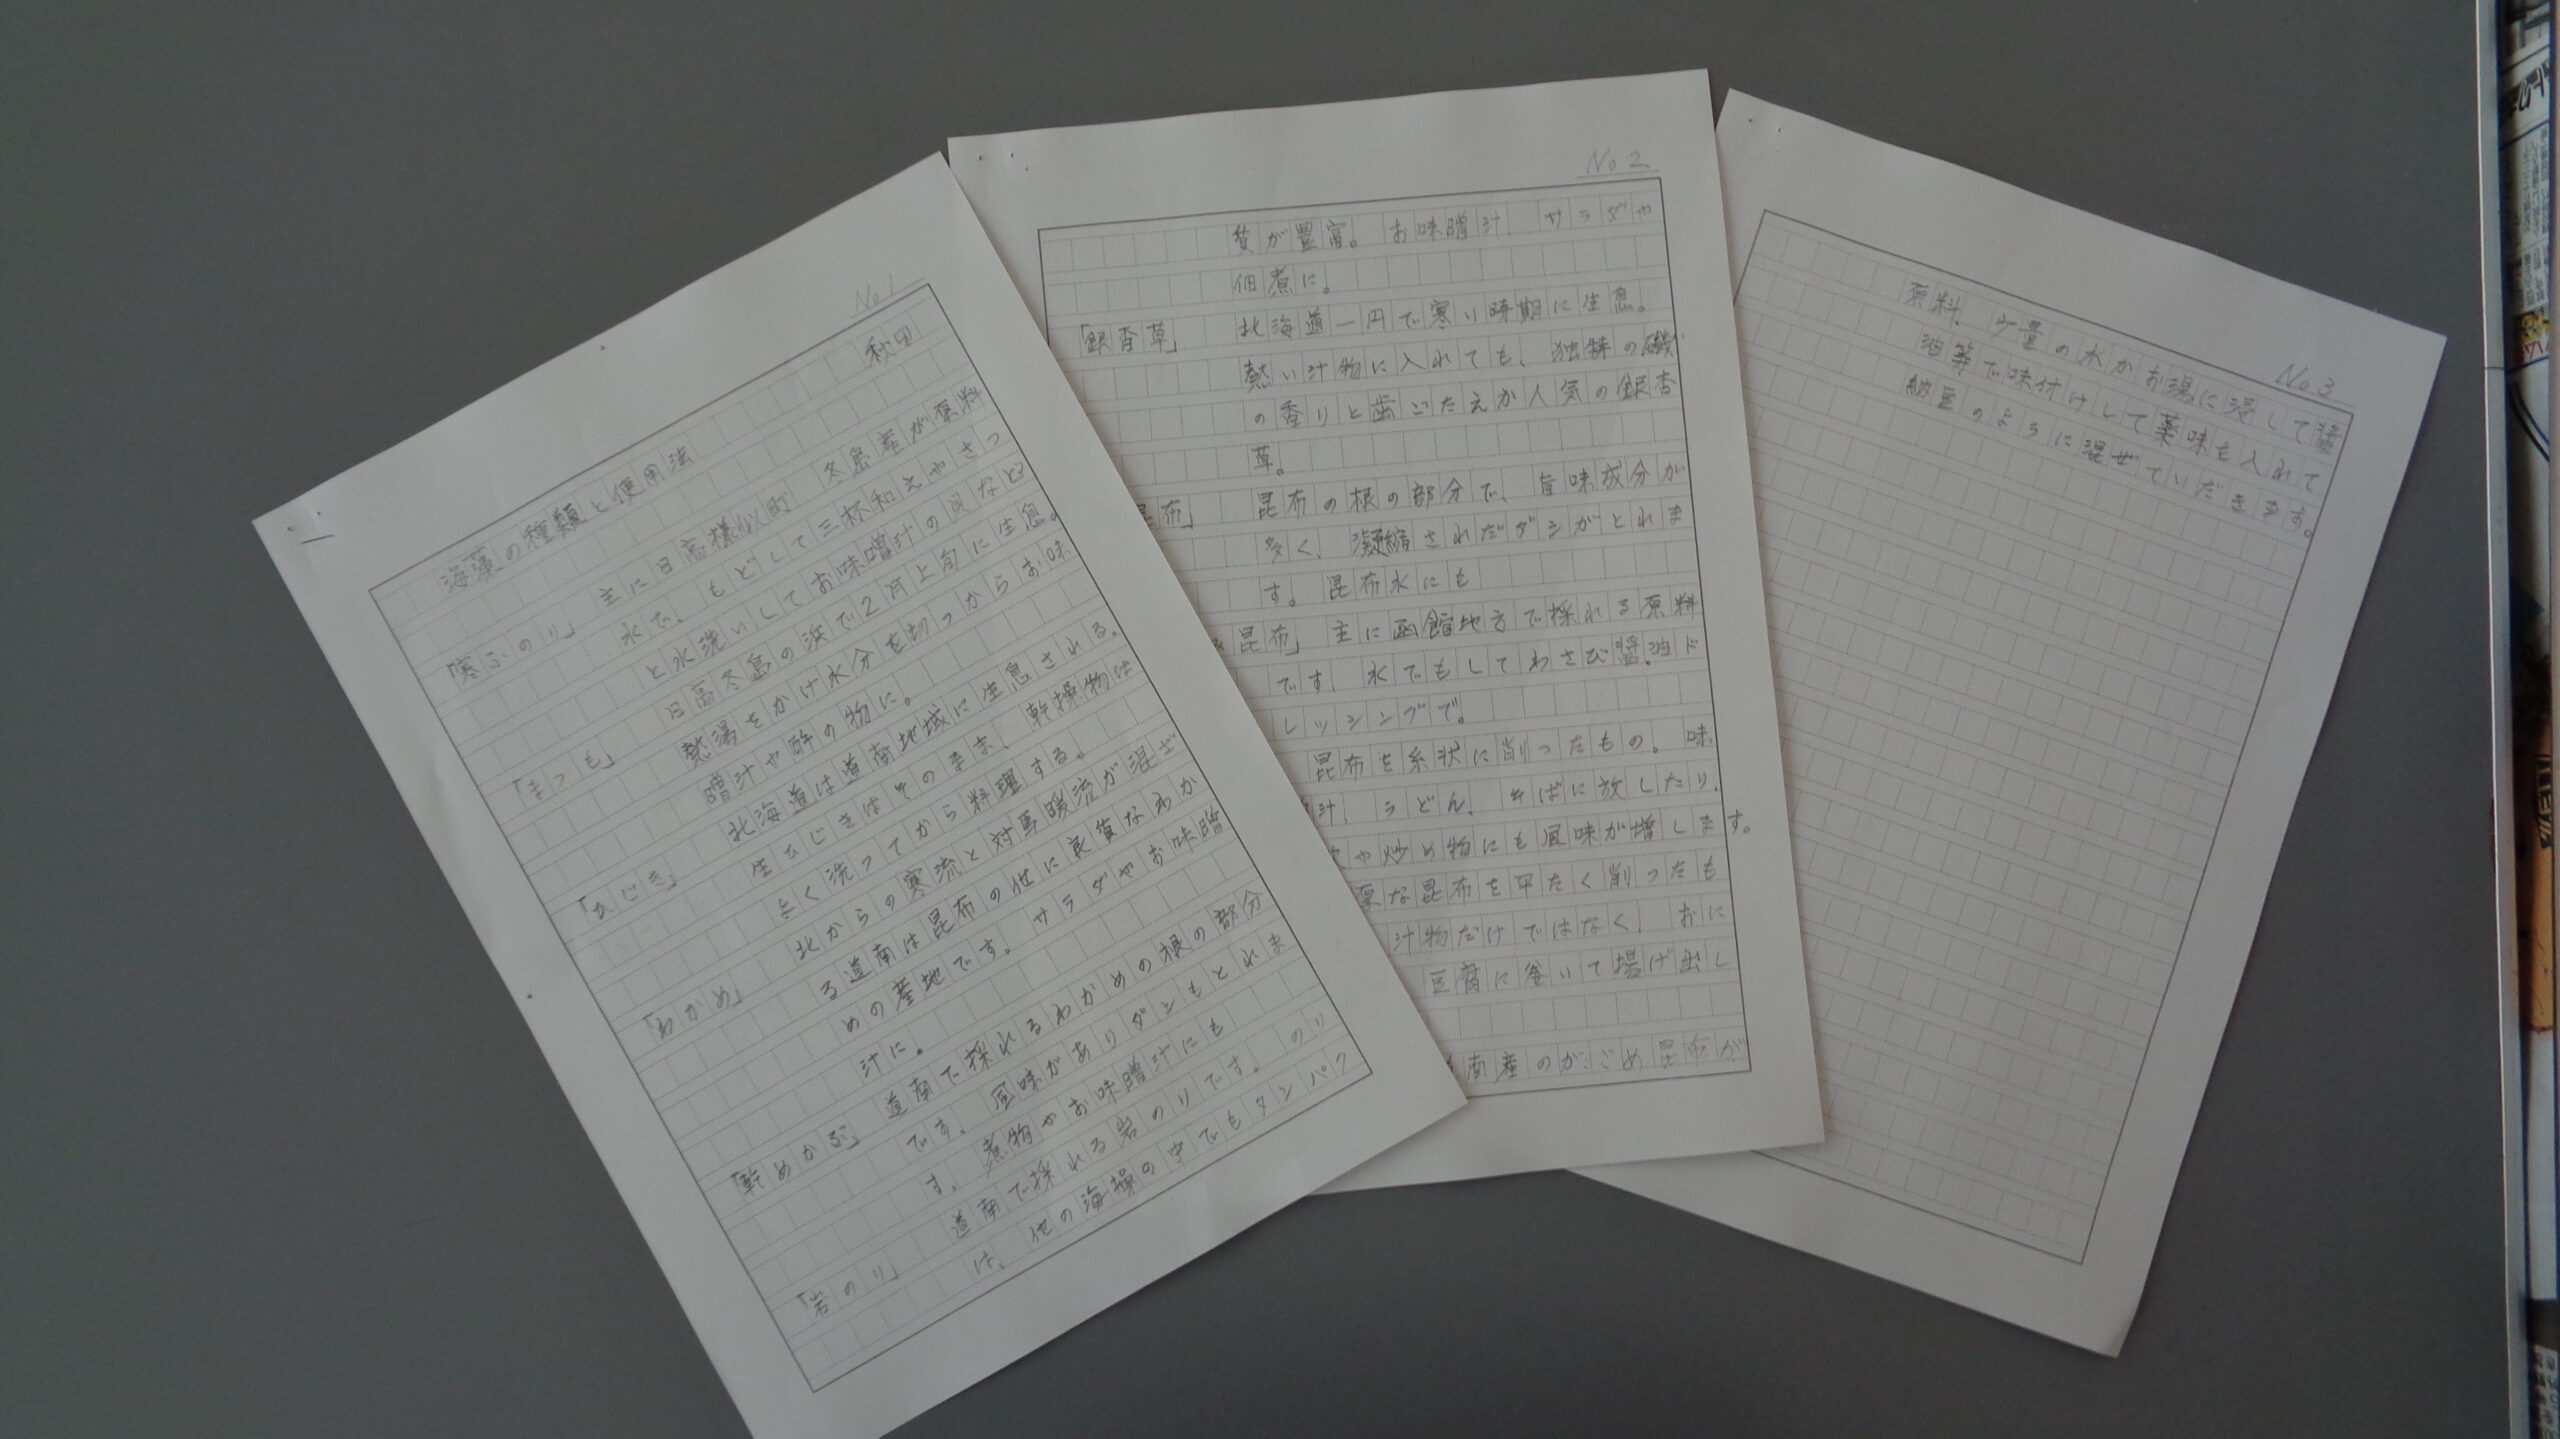 No 1
秋田
海藻の種類と使用法
「寒ふのり」 主に日高様似町 冬島産が原料
水で、もどして三杯和えやさっ
と水洗いしてお味噌汁の具など
「まつも」 日高冬島の浜で2月上旬に生息。
熱湯をかけ水分を切ってからお味
噌汁や酢の物に。
「ひじき」 北海道は道南地域に生息される。
生ひじきはそのまま、乾燥物は
よく洗ってから料理する。
「わかめ」 北からの寒流と対馬暖流が混ざ
る道南は昆布の他に良質なわか
めの産地です。サラダやお味噌
汁に。
「乾めかぶ」 道南で採れるわかめの根の部分
です。風味がありダシもとれま
す。煮物やお味噌汁にも
「岩のり」 道南で採れる岩のりです。のり
は、他の海操の中でもタンパク
No 2
質が豊富。お味噌汁、サラダや
佃煮に。
「銀杏草」 北海道一円で寒い時期に生息。
熱い汁物に入れても、独特の磯
の香りと歯ごたえが人気の銀杏
草。
昆布」 昆布の根の部分で、旨味成分が
多く、凝縮されたダシがとれま
す。昆布水にも
昆布」 主に函館地方で採れる原料
です。水でもしてわさび醤油ド
レッシングで。
昆布を糸状に削ったもの。味
汁、うどん、そばに放したり、
や炒め物にも風味が増します。
厚な昆布を平たく削ったも
汁物だけではなく、おに
豆腐に巻いて揚げ出し
南産のがごめ昆布が
No 3
原料、少量の水かお湯に浸して醤
油等で味付けして薬味を入れて
納豆のように混ぜていだきます。